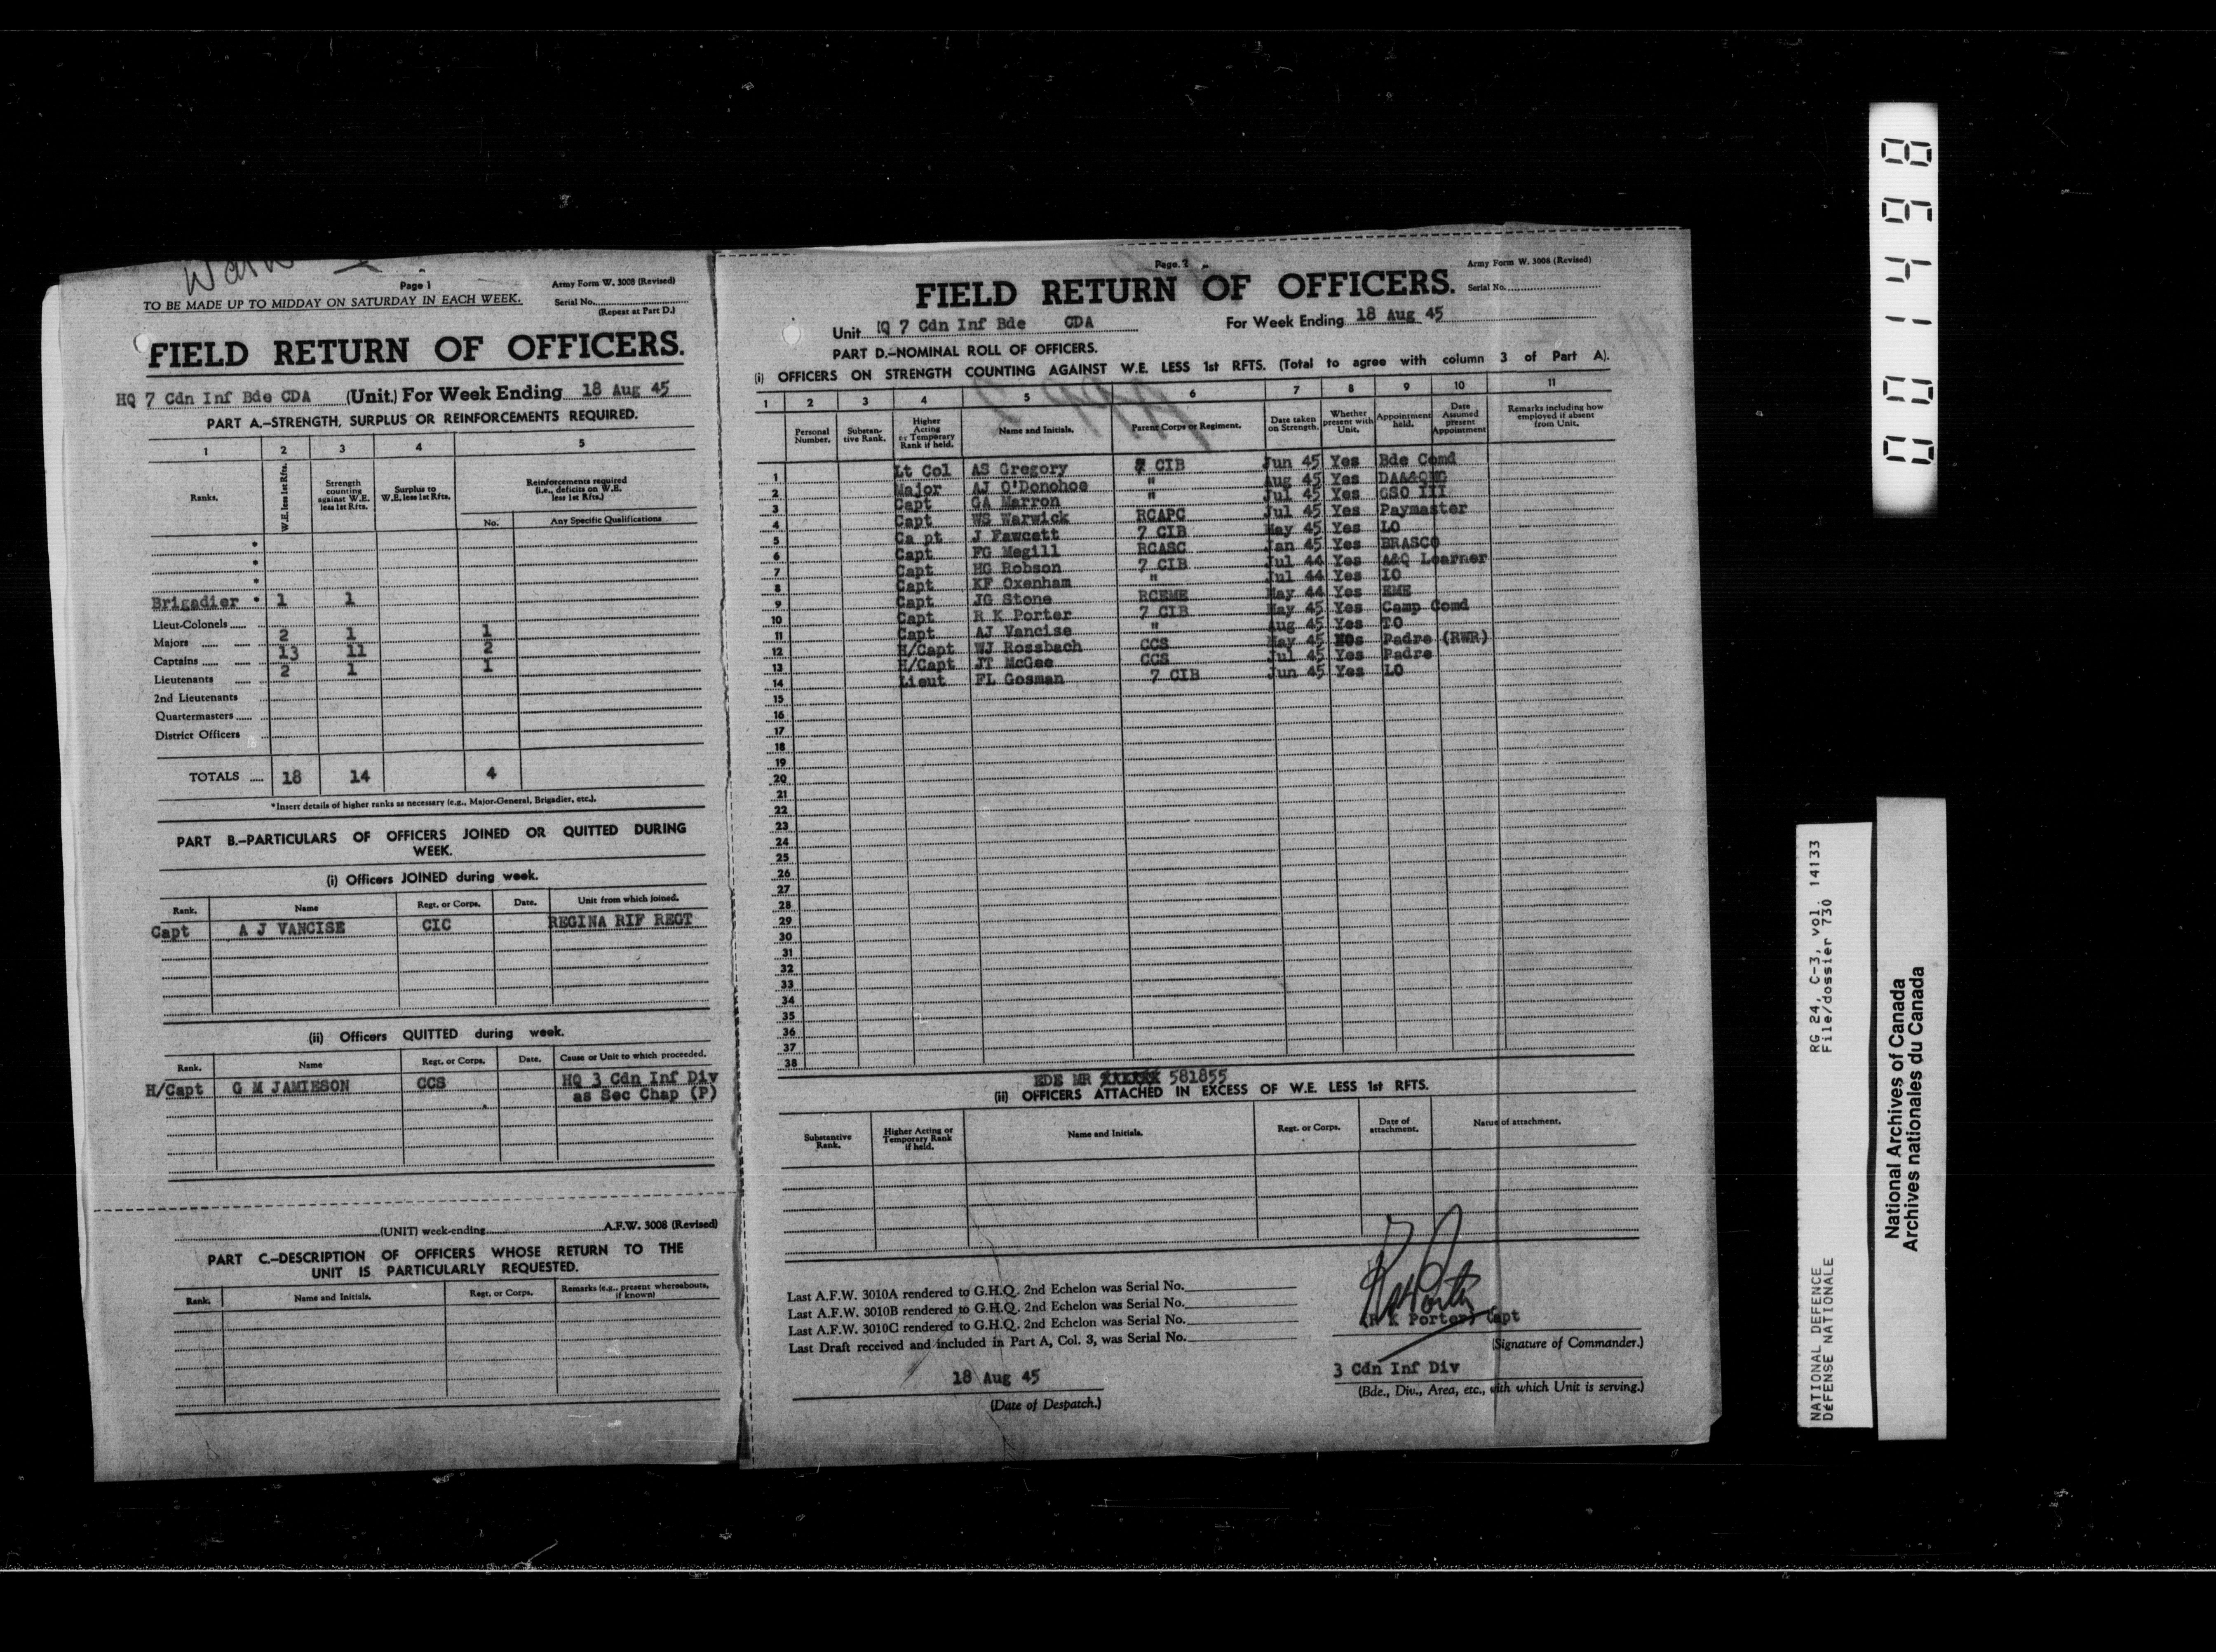 Page 1
Army Form W. 3008 (Revised)
TO BE MADE UP TO MIDDAY ON SATURDAY IN EACH WEEK.
Serial No.
(Repeat at Part D.)
FIELD RETURN OF OFFICERS.
HQ 7 Cdn Inf Bde CDA (Unit.) For Week Ending 18 Aug 45
PART A.—STRENGTH, SURPLUS OR REINFORCEMENTS REQUIRED.
1 2 3 4 5
Ranks. W.E. less 1st Rfts. Strength counting against W.E. less 1st Rfts. Surplus to W.E. less 1st Rfts. Reinforcements required (i.e., deficits on W.E. less 1st Rfts.)
No. Any Specific Qualifications
*
*
*
Brigadier * 1 1
Lieut-Colonels
Majors 2 1 1
Captains 13 11 2
Lieutenants 2 1 1
2nd Lieutenants
Quartermasters
District Officers
TOTALS 18 14 4
*Insert details of higher ranks as necessary (e.g., Major-General, Brigadier, etc.).
PART B.—PARTICULARS OF OFFICERS JOINED OR QUITTED DURING
WEEK.
(i) Officers JOINED during week.
Rank. Name Regt. or Corps. Date. Unit from which joined.
Capt A J VANCISE CIC REGINA RIF REGT
(ii) Officers QUITTED during week.
Rank. Name Regt. or Corps. Date. Cause or Unit to which proceeded.
H/Capt G M JAMIESON CCS HQ 3 Cdn Inf Div
as Sec Chap (P)
(UNIT) week-ending A.F.W. 3008 (Revised)
PART C.—DESCRIPTION OF OFFICERS WHOSE RETURN TO THE
UNIT IS PARTICULARLY REQUESTED.
Rank. Name and Initials. Regt. or Corps. Remarks (e.g., present whereabouts, if known)
Page 2
Army Form W. 3008 (Revised)
FIELD RETURN OF OFFICERS.
Serial No.
Unit HQ 7 Cdn Inf Bde CDA For Week Ending 18 Aug 45
PART D.—NOMINAL ROLL OF OFFICERS.
(i) OFFICERS ON STRENGTH COUNTING AGAINST W.E. LESS 1st RFTS. (Total to agree with column 3 of Part A).
1 2 3 4 5 6 7 8 9 10 11
Personal Number. Substantive Rank. Higher Acting or Temporary Rank if held. Name and Initials. Parent Corps or Regiment. Date taken on Strength. Whether present with Unit. Appointment held. Date Assumed present Appointment Remarks including how employed if absent from Unit.
1 Lt Col AS Gregory 7 CIB Jun 45 Yes Bde Comd
2 Major AJ O'Donohoe " Aug 45 Yes DAA&QMG
3 Capt CA Marron " Jul 45 Yes GSO III
4 Capt WS Warwick RCAPC Jul 45 Yes Paymaster
5 Ca pt J Fawcett 7 CIB May 45 Yes LO
6 Capt FG Megill RCASC Jan 45 Yes BRASCO
7 Capt HG Robson 7 CIB Jul 44 Yes A&Q Learner
8 Capt KF Oxenham " Jul 44 Yes IO
9 Capt JG Stone RCEME May 44 Yes EME
10 Capt R K Porter 7 CIB May 45 Yes Camp Comd
11 Capt AJ Vancise " Aug 45 Yes TO
12 H/Capt WJ Rossbach CCS May 45 Padre (RWR)
13 H/Capt JT McGee CCS Jul 45 Yes Padre
14 Lieut FL Gosman 7 CIB Jun 45 Yes LO
15
16
17
18
19
20
21
22
23
24
25
26
27
28
29
30
31
32
33
34
35
36
37
38
BDE MR 581855
(ii) OFFICERS ATTACHED IN EXCESS OF W.E. LESS 1st RFTS.
Substantive Rank. Higher Acting or Temporary Rank if held. Name and Initials. Regt. or Corps. Date of attachment. Natue of attachment.
Last A.F.W. 3010A rendered to G.H.Q. 2nd Echelon was Serial No.
Last A.F.W. 3010B rendered to G.H.Q. 2nd Echelon was Serial No.
Last A.F.W. 3010C rendered to G.H.Q. 2nd Echelon was Serial No.
Last Draft received and included in Part A, Col. 3, was Serial No.
RK Porter
(R K Porter) Capt
(Signature of Commander.)
18 Aug 45
(Date of Despatch.)
3 Cdn Inf Div
(Bde., Div., Area, etc., with which Unit is serving.)
001498
NATIONAL DEFENCE RG 24, C-3, vol. 14133
DÉFENSE NATIONALE File/dossier 730
National Archives of Canada
Archives nationales du Canada